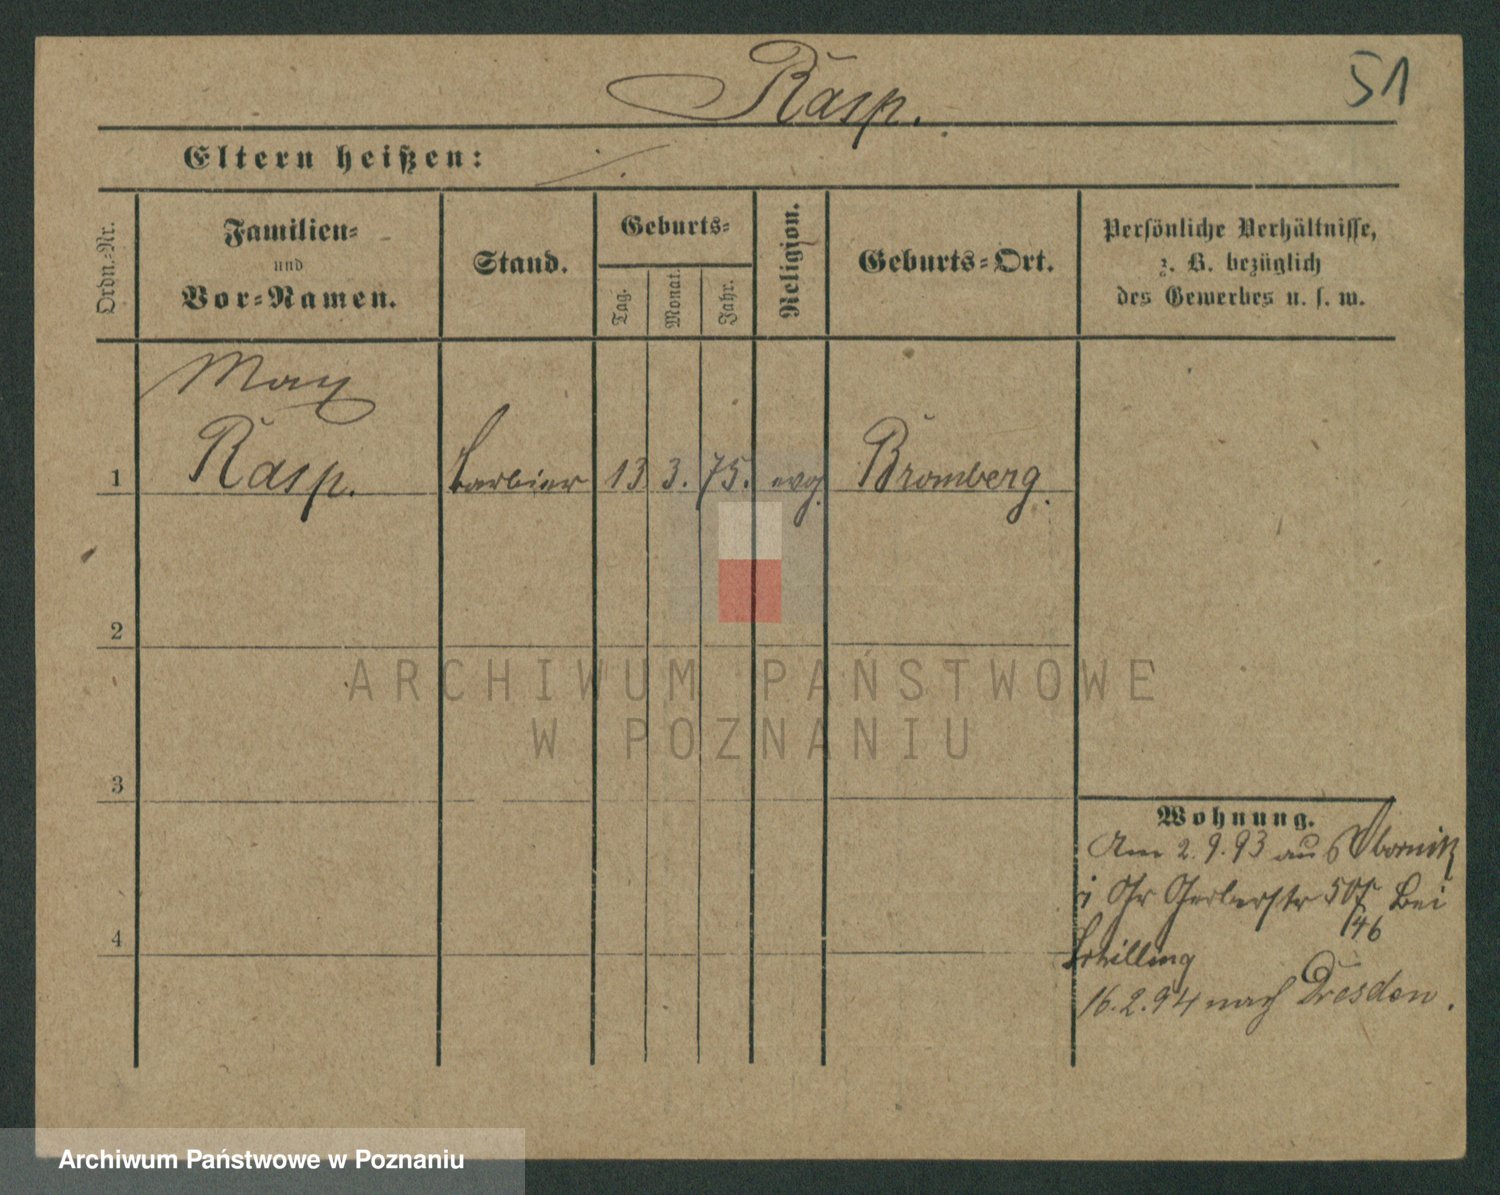 Rasp.
51
Eltern heißen:
Ordn.-Nr.
Familien-
und
Vor-Namen.
Stand.
Geburts-
Tag.
Monat.
Jahr.
Religion.
Geburts-Ort.
Persönliche Verhältnisse,
z. B. bezüglich
des Gewerbes u. s. w.
Max
1 Rasp. Barbier 13 3. 75. evg. Bromberg.
2
3
4
Wohnung.
Am 2.9.93 aus Obornik
Gr Gerberstr 50 bei
46
Schilling
16.2.94 nach Dresden.
ARCHIWUM PAŃSTWOWE
W POZNANIU
Archiwum Państwowe w Poznaniu